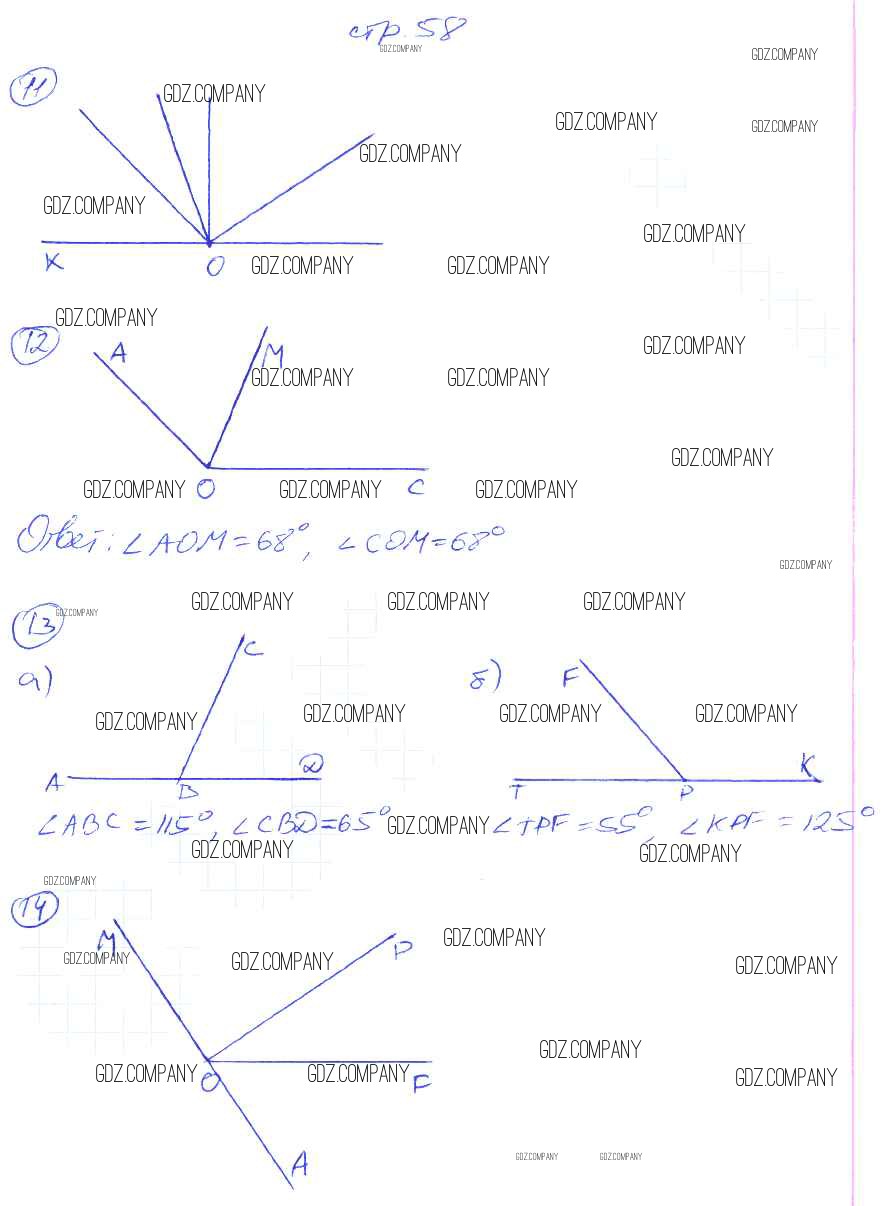 стр. 58
GDZ.COMPANY
GDZ.COMPANY
11
GDZ.COMPANY
GDZ.COMPANY
GDZ.COMPANY
GDZ.COMPANY
GDZ.COMPANY
GDZ.COMPANY
K O
GDZ.COMPANY GDZ.COMPANY
GDZ.COMPANY
12
A M
GDZ.COMPANY
GDZ.COMPANY GDZ.COMPANY
GDZ.COMPANY
GDZ.COMPANY O GDZ.COMPANY C GDZ.COMPANY
Ответ: ∠AOM = 68°, ∠COM = 68°
GDZ.COMPANY
GDZ.COMPANY GDZ.COMPANY GDZ.COMPANY
13 GDZ.COMPANY
C
а) б) F
GDZ.COMPANY GDZ.COMPANY GDZ.COMPANY GDZ.COMPANY
A B D T P K
∠ABC = 115°, ∠CBD = 65° GDZ.COMPANY ∠TPF = 55°, ∠KPF = 125°
GDZ.COMPANY GDZ.COMPANY
GDZ.COMPANY
14
M P
GDZ.COMPANY
GDZ.COMPANY GDZ.COMPANY GDZ.COMPANY
GDZ.COMPANY
GDZ.COMPANY O GDZ.COMPANY F GDZ.COMPANY
A
GDZ.COMPANY GDZ.COMPANY